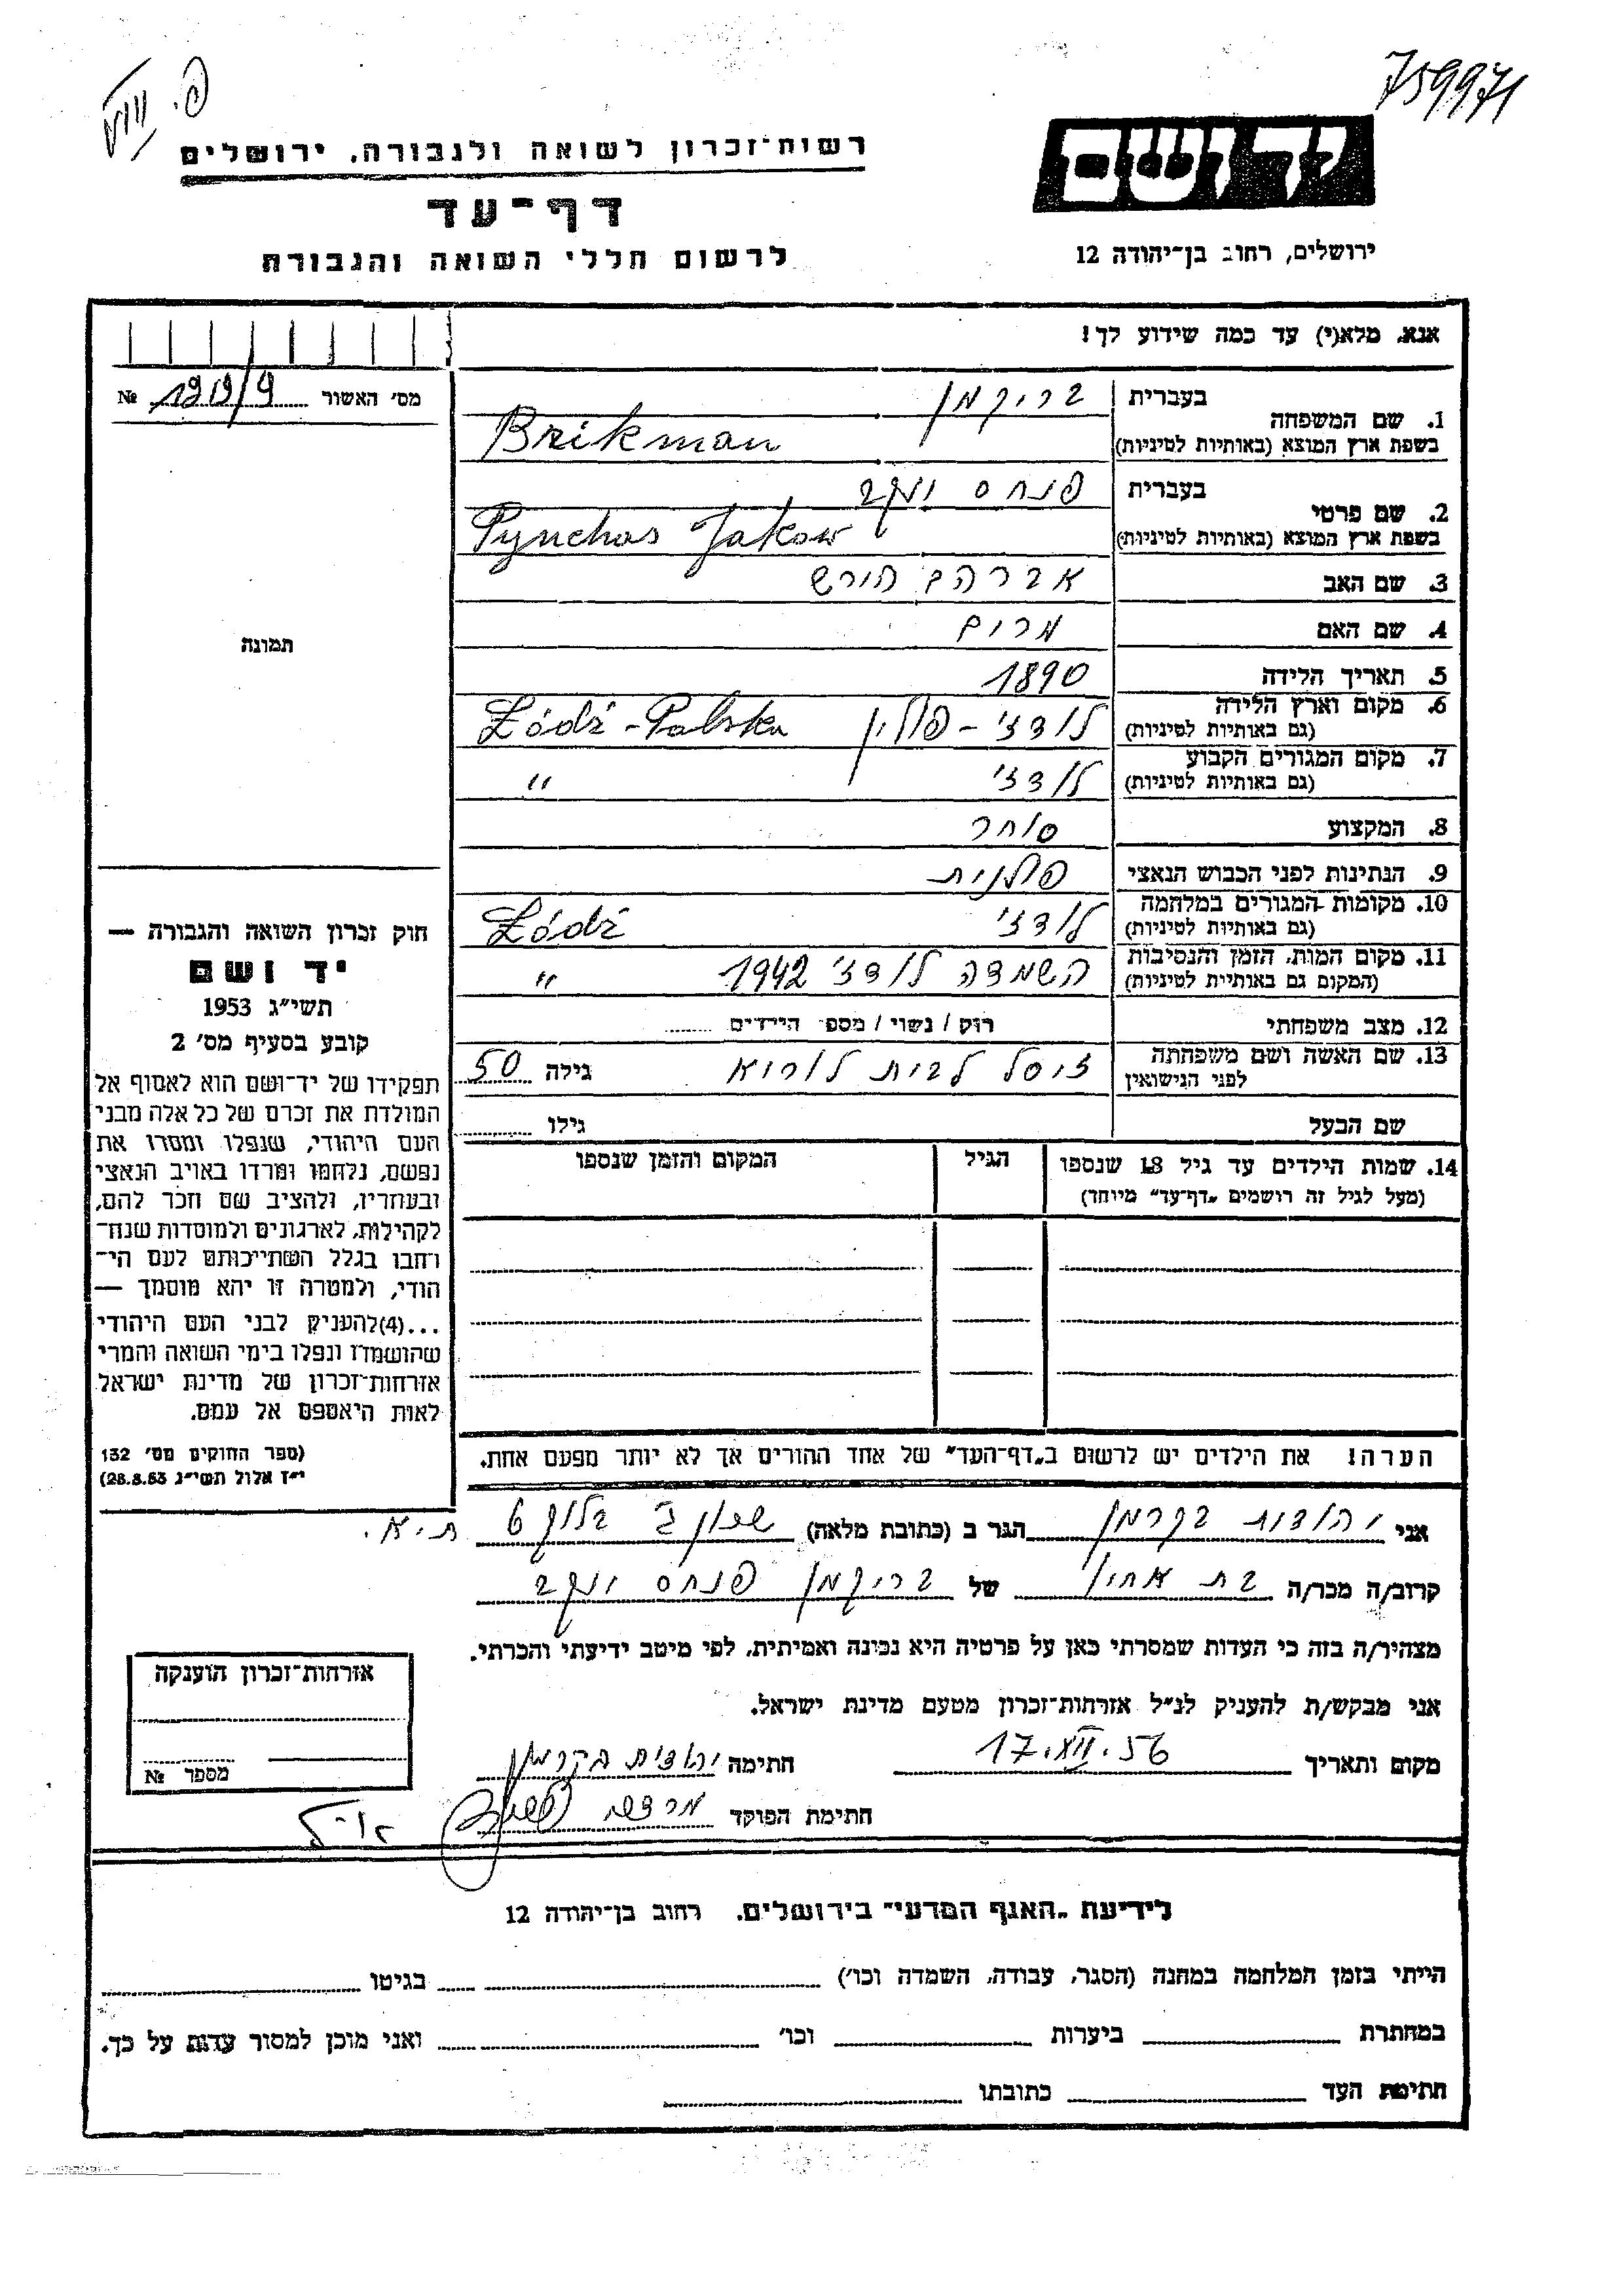 759971
פ. VIII
יד ושם
רשות־זכרון לשואה ולגבורה, ירושלים
דף־עד
לרשום חללי השואה והגבורה
ירושלים, רחוב בן־יהודה 12
אנא, מלא(י) עד כמה שידוע לך!
מס׳ האשור № 1919/9
1. שם המשפחה בעברית בריקמן
בשפת ארץ המוצא (באותיות לטיניות) Brikman
2. שם פרטי בעברית פנחס יעקב
בשפת ארץ המוצא (באותיות לטיניות) Pynchas Jakow
3. שם האב אברהם הירש
4. שם האם מרים
5. תאריך הלידה 1890
6. מקום וארץ הלידה (גם באותיות לטיניות) לודז׳ – פולין Łódź - Polska
7. מקום המגורים הקבוע (גם באותיות לטיניות) לודז׳ "
8. המקצוע סוחר
9. הנתינות לפני הכבוש הנאצי פולנית
10. מקומות המגורים במלחמה (גם באותיות לטיניות) לודז׳ Łódź
11. מקום המות, הזמן והנסיבות (המקום גם באותיות לטיניות) השמדה לודז׳ 1942 "
12. מצב משפחתי רוק / נשוי / מספר הילדים
13. שם האשה ושם משפחתה לפני הנישואין זיסל לבית לוריא גילה 50
שם הבעל גילו
14. שמות הילדים עד גיל 18 שנספו (מעל לגיל זה רושמים „דף־עד״ מיוחד)
הגיל
המקום והזמן שנספו
הערה! את הילדים יש לרשום ב„דף־העד״ של אחד ההורים אך לא יותר מפעם אחת.
תמונה
חוק זכרון השואה והגבורה —
יד ושם
תשי״ג 1953
קובע בסעיף מס׳ 2
תפקידו של יד־ושם הוא לאסוף אל
המולדת את זכרם של כל אלה מבני
העם היהודי, שנפלו ומסרו את
נפשם, נלחמו ומרדו באויב הנאצי
ובעוזריו, ולהציב שם וזכר להם,
לקהילות, לארגונים ולמוסדות שנח־
רבו בגלל השתייכותם לעם הי־
הודי, ולמטרה זו יהא מוסמך —
...(4)להעניק לבני העם היהודי
שהושמדו ונפלו בימי השואה והמרי
אזרחות־זכרון של מדינת ישראל
לאות היאספם אל עמם.
(ספר החוקים מס׳ 132
י״ז אלול תשי״ג 28.8.53)
אני יהודית בקרמן הגר ב (כתובת מלאה) שכון ג׳ בלוק 6 ת.א.
קרוב/ה מכר/ה בת אחיו של בריקמן פנחס יעקב
מצהיר/ה בזה כי העדות שמסרתי כאן על פרטיה היא נכונה ואמיתית, לפי מיטב ידיעתי והכרתי.
אני מבקש/ת להעניק לנ״ל אזרחות־זכרון מטעם מדינת ישראל.
מקום ותאריך 17.XII.56 חתימה יהודית בקרמן
חתימת הפוקד
אזרחות־זכרון הוענקה
מספר №
לידיעת „האגף המדעי״ בירושלים, רחוב בן־יהודה 12
הייתי בזמן המלחמה במחנה (הסגר, עבודה, השמדה וכו׳) בגיטו
במחתרת ביערות וכו׳ ואני מוכן למסור עדות על כך.
חתימת העד כתובתו